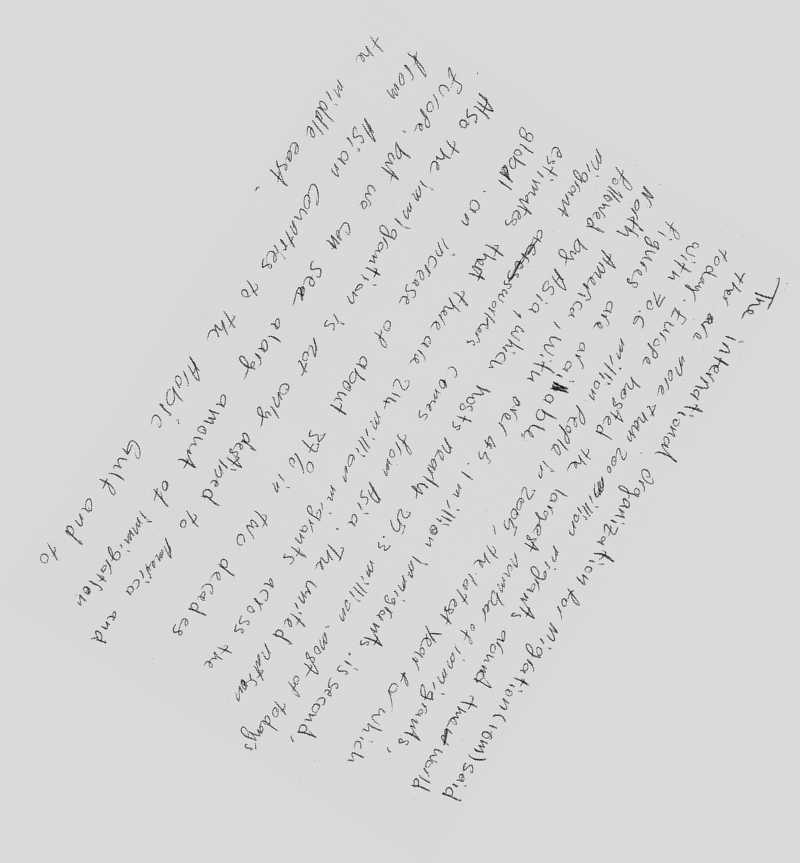 The international organization for migration (iom) said
Ther are more than 200 million migrants around the world
today. Europe hosted the largest number of immigrants,
with 70.6 million People in 2005, the latest year for which
figures are available
North America, with over 45.1 million Immigrants. is second,
followed by Asia, which hosts nearly 25.3 million. most of today's
migrant workers comes from Asia. The united nation
estimates that there are 214 million migrants across the
global. an increase of about 37% in two decades
Also the immigrantion is not only destined to America and
Europe, but we can see alarg amount of immigration
from Asian Countries to the Arabic Gulf and to
the middle east.